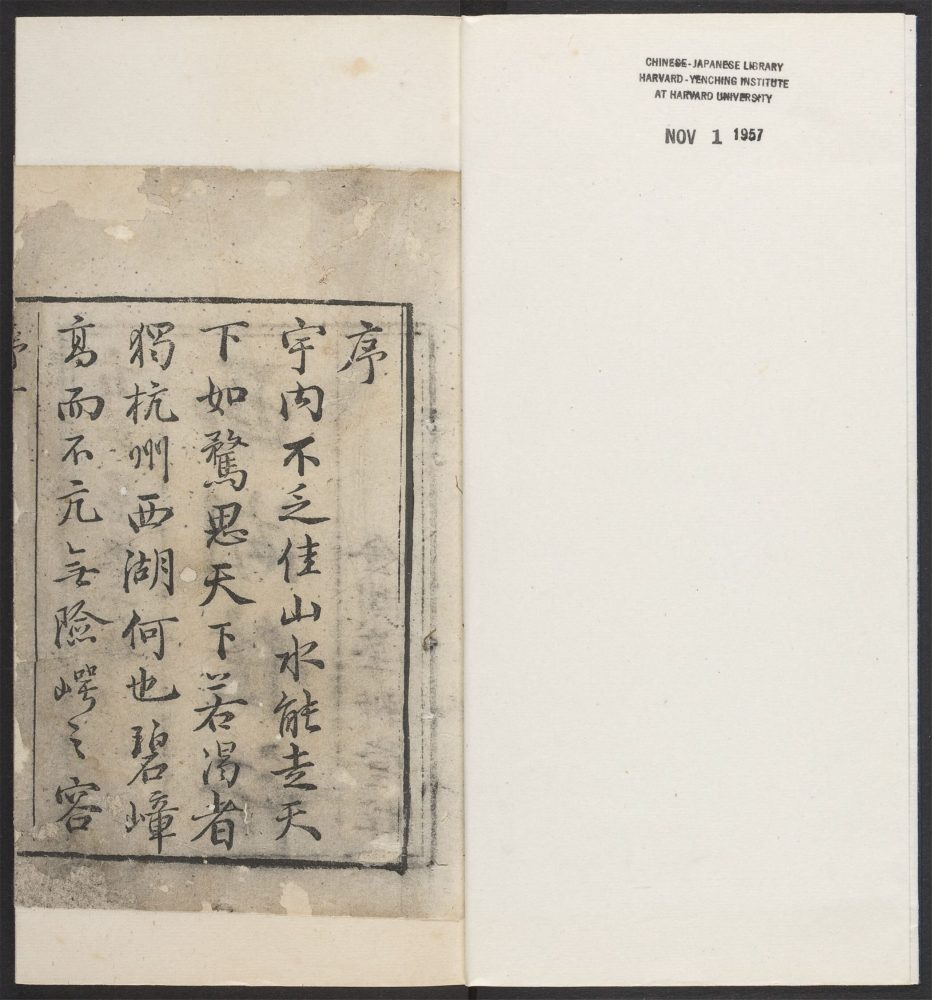 CHINESE-JAPANESE LIBRARY
HARVARD-YENCHING INSTITUTE
AT HARVARD UNIVERSITY
NOV 1 1957
序
宇内不乏佳山水能走天
下如騖思天下若渴者
獨杭州西湖何也碧嶂
高而不亢無險崿之容
序一